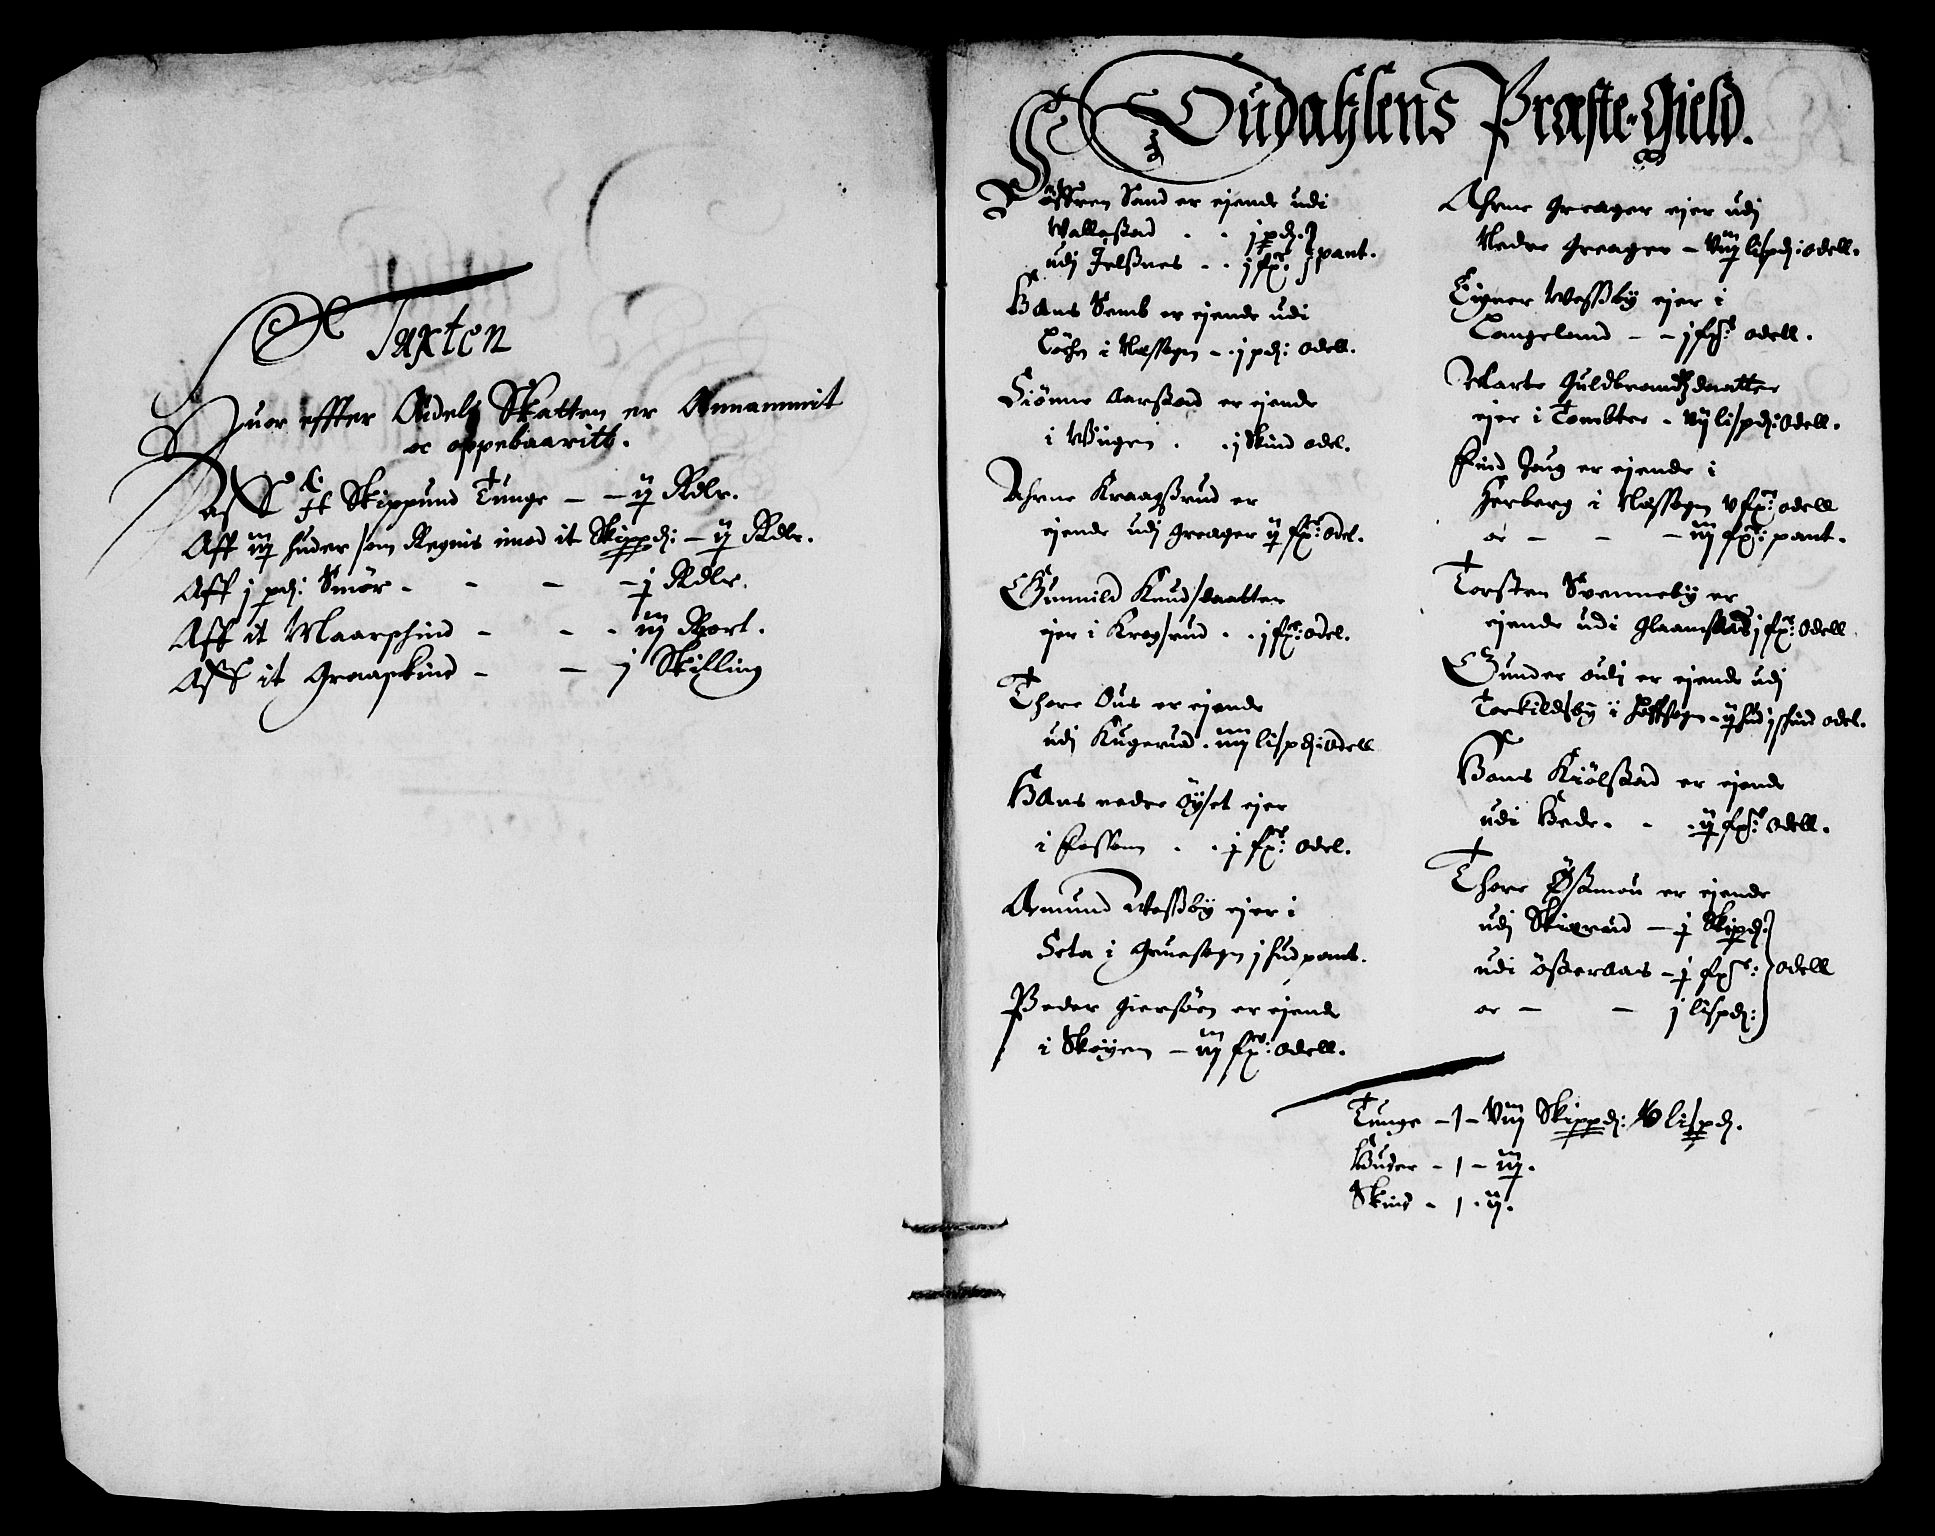 Taxten
Huor effter Odels Skatten er Annammit
oc oppebaaritt.
Aff it Skippund Tunge – – ij Rdlr.
Aff iij huder som Regnis imod it Skippd: – ij Rdlr.
Aff j pd: Smör – – – – j Rdlr.
Aff it Maarschind – – – iij Rort.
Aff it Graaskind – – j Skilling
Oudahlens Præste-Gield.
Assren Sand er ejende udi
Wallestad . . j pd:
udj Jelssnes . . j fr: pant.
Hans Semb er ejende udi
i Næssogn – j pd: odell.
Siönne Aarstad er ejende
i Wiigen . . j Skind odel.
Ahrne Kraagssrud er
ejende udj Greager ij fr: odel.
Gunnild Knudsdaatter
ejer i Krogsrud . . j fr: odel.
Thore Ous er ejende
udj Kugerud . iiij lispd: odell
Hans nedre Öyset ejer
i Fossom . . j fr: odel.
Amund Wessby ejer i
Seta i Gruesogn j hud pant.
Peder Giersöen er ejende
i Skøyen – iij fr: odell.
Ahrne Greager ejer udj
Nedre Greager – viij lispd: odell.
Eigner Wessby ejer i
Langeland – – j fr: odell.
Marte Guldbrandsdaatter
ejer i Tombter – vij lispd: odell.
Find Joug er ejende i
Herberg i Næssogn v fr: odell
oc – – – iij fr: pant.
Torsten Svenneby er
ejende udi Glaamsaas j fr: odell
Gunder oudj er ejende udj
Torkildsby i Hoffsogn – ij hud j skind odel.
Hans Kiölstad er ejende
udi Hede . . . ij fr: odell.
Thore Östmou er ejende
udj Skierud – j Skipd:
udi Österaas – j fr: odell
oc – – j lispd:
Tunge – j – viij Skippd: 16 lispd.
Huder – j – iij.
Skind – j . ij.